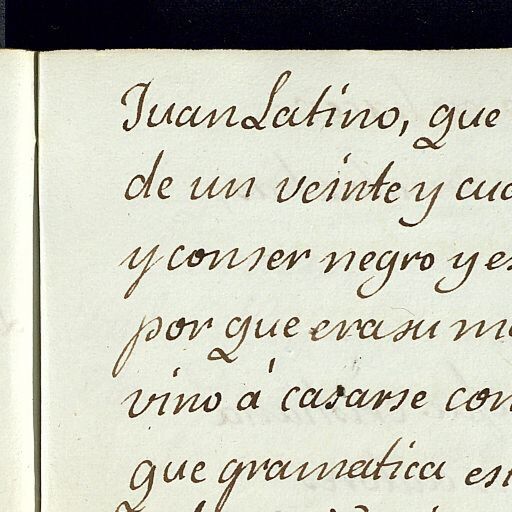 Juan Latino, que
de un veinte y cua
y con ser negro y es
por que era su ma
vino á casarse con
que gramatica es